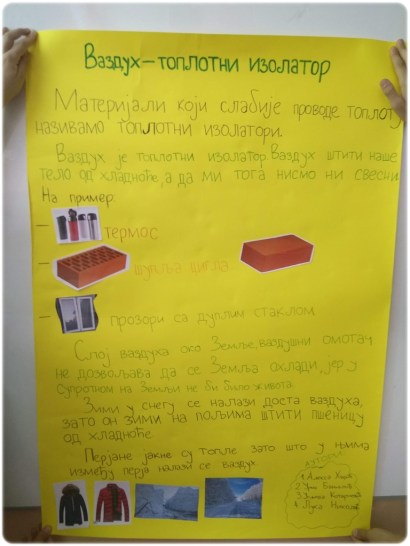 Ваздух – топлотни изолатор
Материјали који слабије проводе топлоту
називамо топлотни изолатори.
Ваздух је топлотни изолатор. Ваздух штити наше
тело од хладноће, а да ми тога нисмо ни свесни
На пример:
– термос
– шупља цигла
– прозори са дуплим стаклом
Слој ваздуха око Земље, ваздушни омотач
не дозвољава да се Земља охлади, јер у
супротном на Земљи не би било живота.
Зими у снегу се налази доста ваздуха,
зато он зими на пољима штити пшеницу
од хладноће.
Перјане јакне од топле зато што у њима
између перја налази се ваздух.
Аутори:
1.
2. Урош
3.
4. Лука